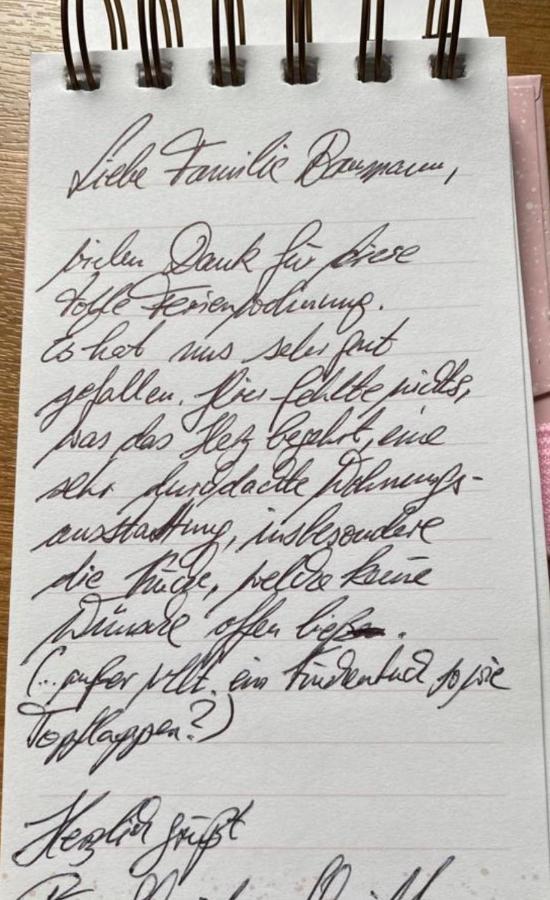 Liebe Familie Baumann,
vielen Dank für diese
tolle Ferienwohnung.
Es hat uns sehr gut
gefallen. Hier fehlte nichts,
was das Herz begehrt, eine
sehr durchdachte Wohnungs-
ausstattung, insbesondere
die Küche, welche keine
Wünsche offen ließ.
(... außer vllt. ein Küchentuch sowie
Topflappen?)
Herzlich grüßt